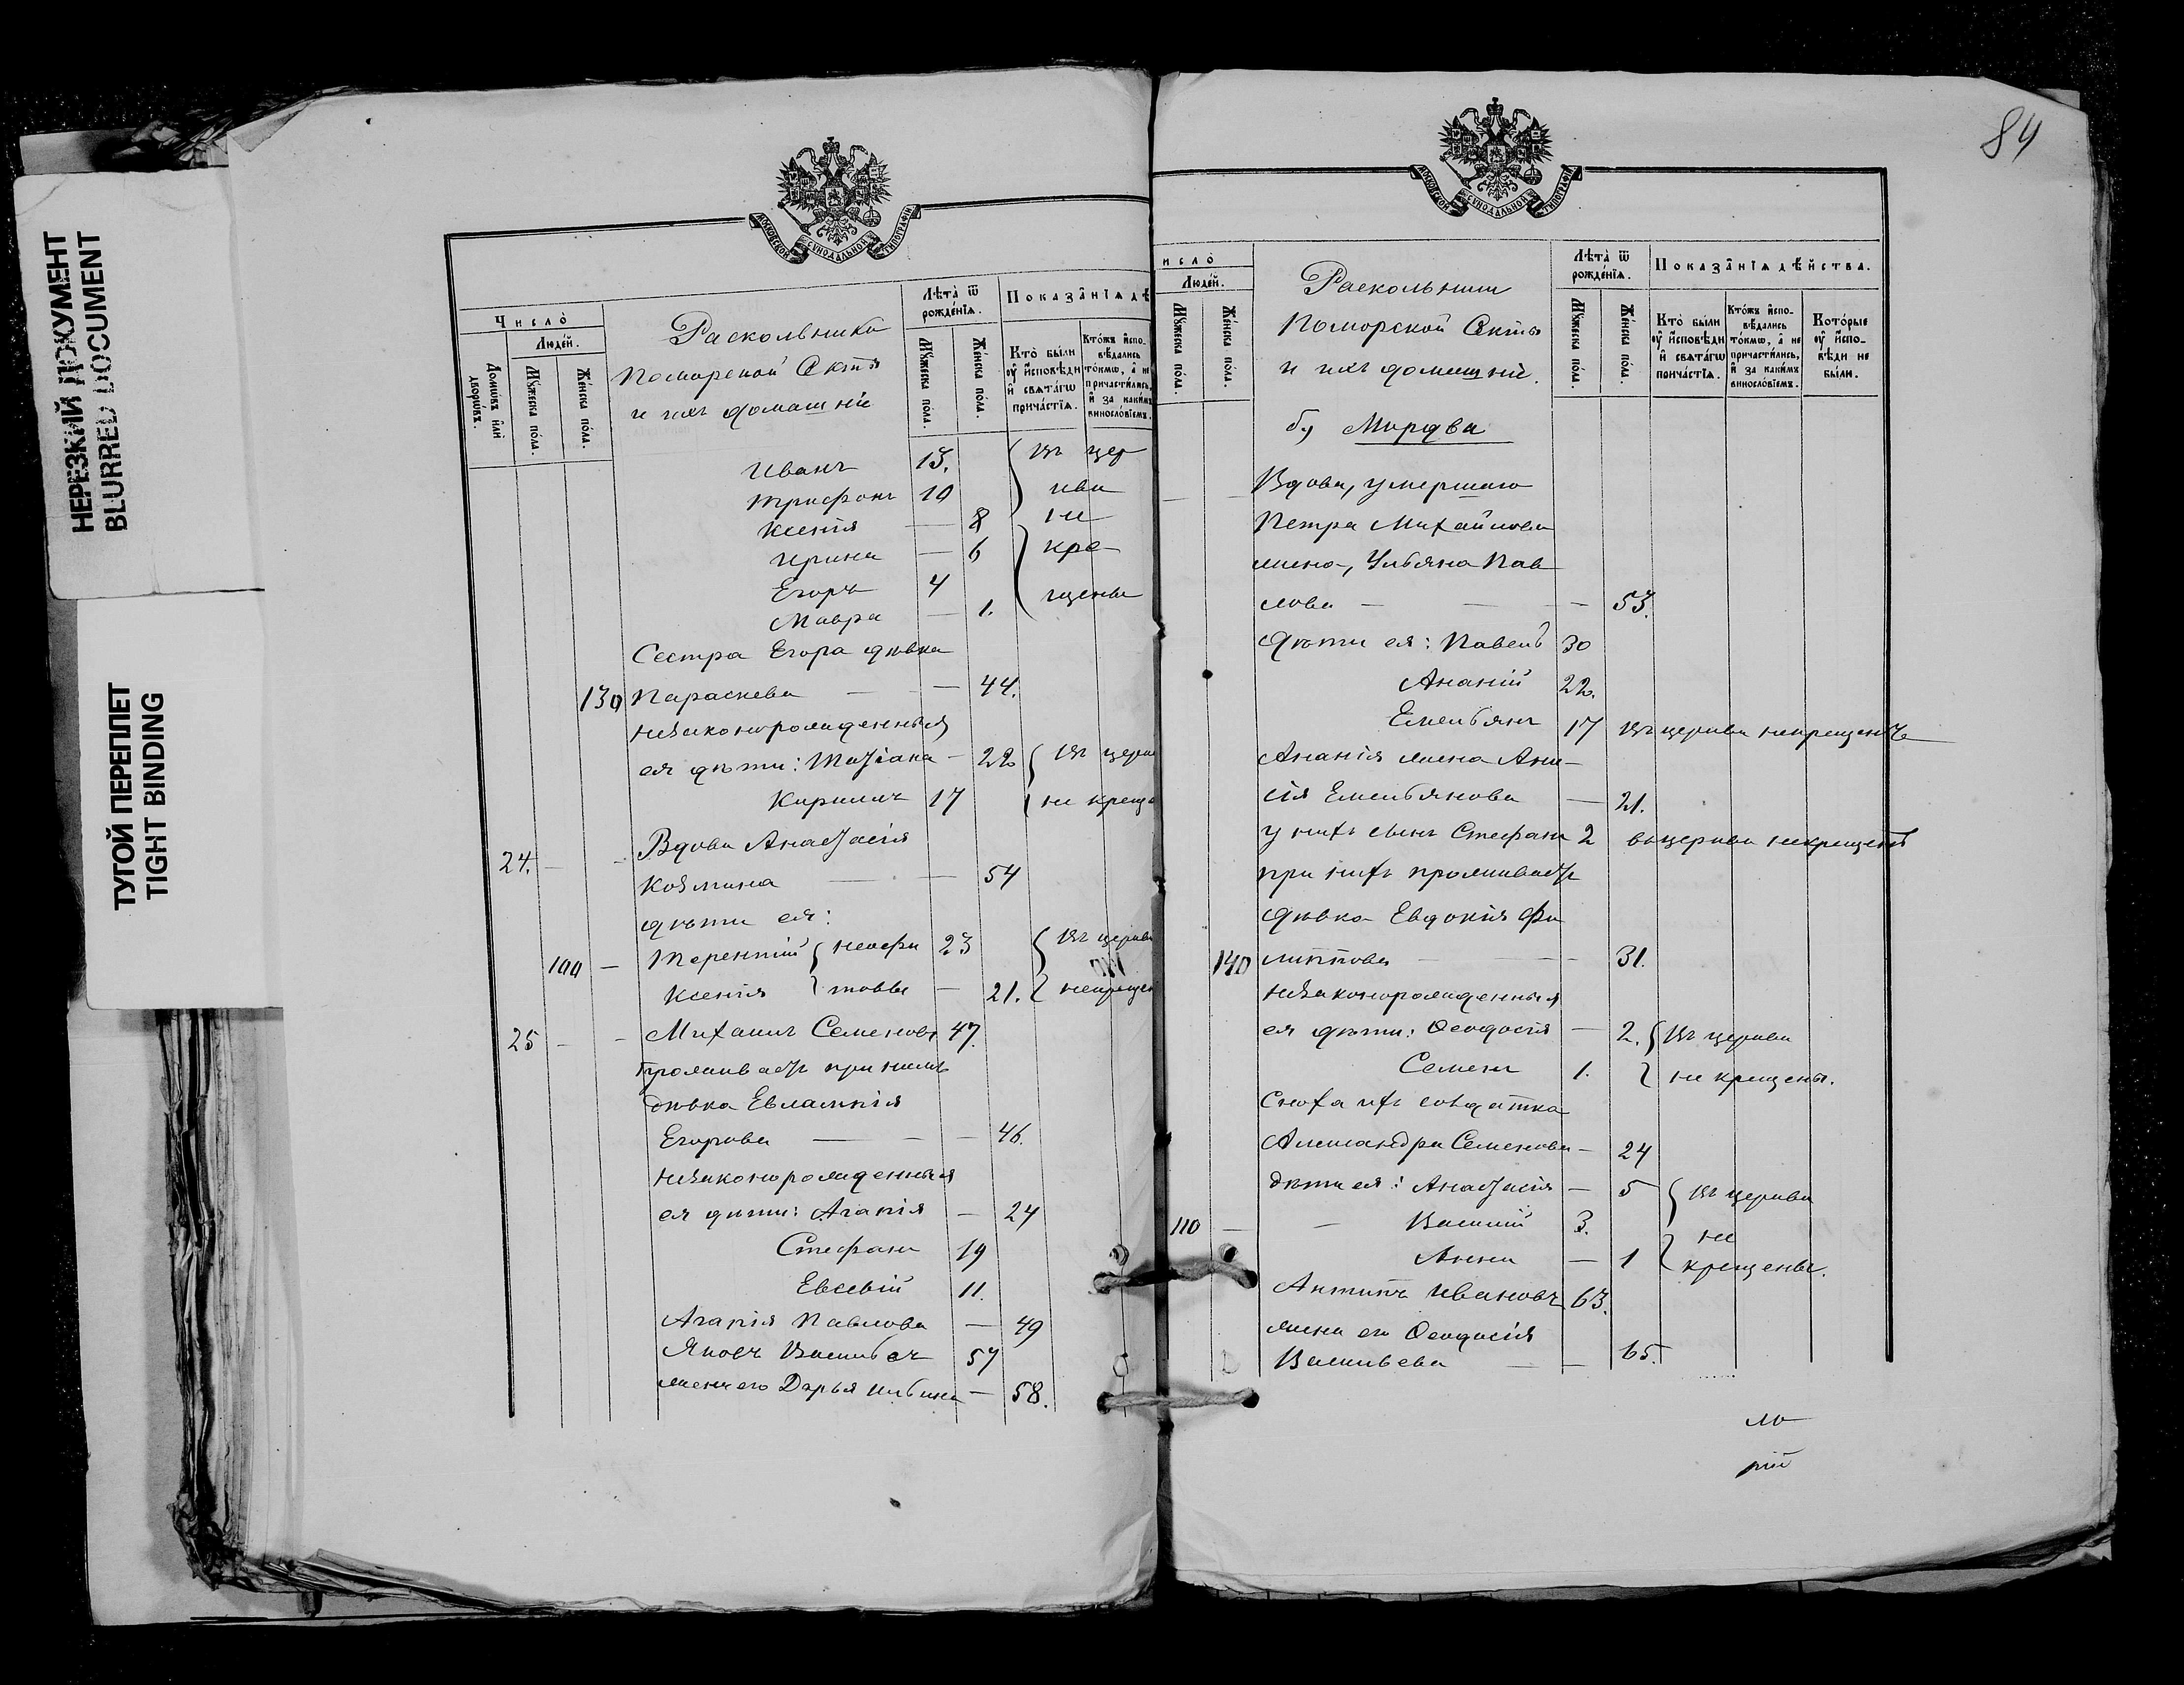 НЕРЕЗКИЙ ДОКУМЕНТ
BLURRED DOCUMENT
ТУГОЙ ПЕРЕПЛЕТ
TIGHT BINDING
МОСКОВСКОЙ СѴНОДАЛЬНОЙ ТИПОГРАФІИ
Число̀
Люде́й.
Домѡ́въ и҆лѝ дворѡ́въ.
Мꙋ́жеска по́ла.
Же́нска по́ла.
Раскольники
Поморской Секты
и ихъ домашніе
Лѣ́та ѿ рожде́нїѧ.
Мꙋ́жеска по́ла.
Же́нска по́ла.
Показа̑нїѧ дѣ
Кто̀ бы́ли ᲂу҆ и҆сповѣ́ди и҆ свѧта́гѡ причáстїѧ.
Кто́жъ и҆спо-
вѣ́дались
то́кмѡ, а҆ не
причасти́лись,
и҆ за каки́мъ
винословїемъ.
Иванъ 13. въ цер
Трифонъ 10 кви
Ксенія — 8 не
Ирина — 6 кре-
Егоръ 4 щены
Мавра — 1.
Сестра Егора дѣвка
130 Параскева — — 44.
незаконорожденныя
ея дѣти: Татіана — 22 въ церк
Кириллъ 17 не креще
24. — — Вдова Анастасія
Козмина — — 54
дѣти ея:
100 — Терентій неофи 23 въ церкви
Ксенія товы — 21. некрещен
25 — — Михаилъ Семеновъ 47.
проживаетъ при немъ
дѣвка Евлампія
Егорова — — — 46.
незаконорожденныя
ея дѣти: Агапія — 24
Стефанъ 19
Евсевій 11.
Агапія Павлова — 49
Яковъ Васильевъ 57
жена его Дарья — 58.
84
МОСКОВСКОЙ СѴНОДАЛЬНОЙ ТИПОГРАФІИ
исло̀
Люде́й.
Мꙋ́жеска по́ла.
Же́нска по́ла.
Раскольники
Поморской Секты
и ихъ домашніе.
Лѣ́та ѿ рожде́нїѧ.
Мꙋ́жеска по́ла.
Же́нска по́ла.
Показа̑нїѧ дѣ́йства.
Кто̀ бы́ли ᲂу҆ и҆сповѣ́ди и҆ свѧта́гѡ причáстїѧ.
Кто́жъ и҆спо-
вѣ́дались
то́кмѡ, а҆ не
причасти́лись,
и҆ за каки́мъ
винословїемъ.
Кото́рые ᲂу҆ и҆спо-
вѣ́ди не бы́ли.
б) Мордва
— — Вдова, умершаго
Петра Михайлова
жена, Ульяна Пав
лова — — — 53.
Дѣти ея: Павелъ 30
Ананій 22.
Емельянъ 17 въ церкви некрещенъ
Ананія жена Ани-
сія Емельянова — 21.
у нихъ сынъ Стефанъ 2 въ церкви некрещенъ
при нихъ проживаетъ
дѣвка Евдокія Фи
140 липпова — — — 31.
незаконорожденныя
ея дѣти: Ѳеодосія — 2. въ церкви
Семенъ 1. не крещены.
Сноха ихъ солдатка
Александра Семенова — 24
дѣти ея: Анастасія — 5 въ церкви
110 — — Василій 3. не
Анна — 1 крещены.
Антипъ Ивановъ 63.
жена его Ѳеодосія
Васильева — — 65.